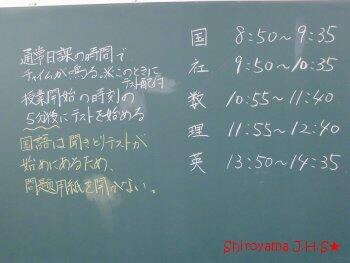 通常日課の時間で
チャイムが鳴る。※このときに
テスト配付
授業開始の時刻の
5分後にテストを始める
国語は聞きとりテストが
始めにあるため、
問題用紙を開かない。
国 8:50～9:35
社 9:50～10:35
数 10:55～11:40
理 11:55～12:40
英 13:50～14:35
Shiroyama J.H.S★